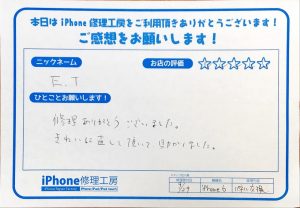 本日は iPhone 修理工房をご利用頂きありがとうございます!
ご感想をお願いします!
ニックネーム
お店の評価
☆☆☆☆☆
E.T
ひとことお願いします!
修理ありがとうございました。
きれいに直して頂いて助かりました。
iPhone修理工房
iPhone 6